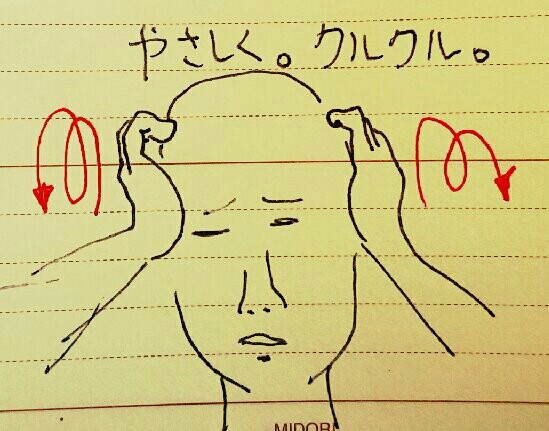 やさしく。クルクル。
MIDORI